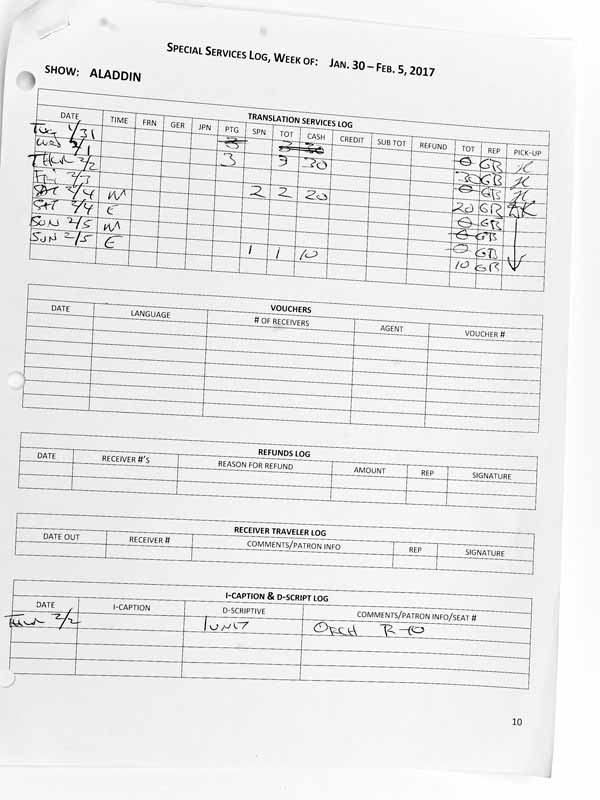 SPECIAL SERVICES LOG, WEEK OF: JAN. 30 – FEB. 5, 2017
SHOW: ALADDIN
TRANSLATION SERVICES LOG
DATE TIME FRN GER JPN PTG SPN TOT CASH CREDIT SUB TOT REFUND TOT REP PICK-UP
TUE 1/31 3 3 30 0 GB
WED 2/1 3 3 30 30 GB
THUR 2/2 0 GB
FRI 2/3 2 2 20 20 GB
SAT 2/4 M 0 GB
SAT 2/4 E 0 GB
SUN 2/5 M 1 1 10 10 GB
SUN 2/5 E
VOUCHERS
DATE LANGUAGE # OF RECEIVERS AGENT VOUCHER #
REFUNDS LOG
DATE RECEIVER #'S REASON FOR REFUND AMOUNT REP SIGNATURE
RECEIVER TRAVELER LOG
DATE OUT RECEIVER # COMMENTS/PATRON INFO REP SIGNATURE
I-CAPTION & D-SCRIPT LOG
DATE I-CAPTION D-SCRIPTIVE COMMENTS/PATRON INFO/SEAT #
THUR 2/2 1 UNIT ORCH R-10
10